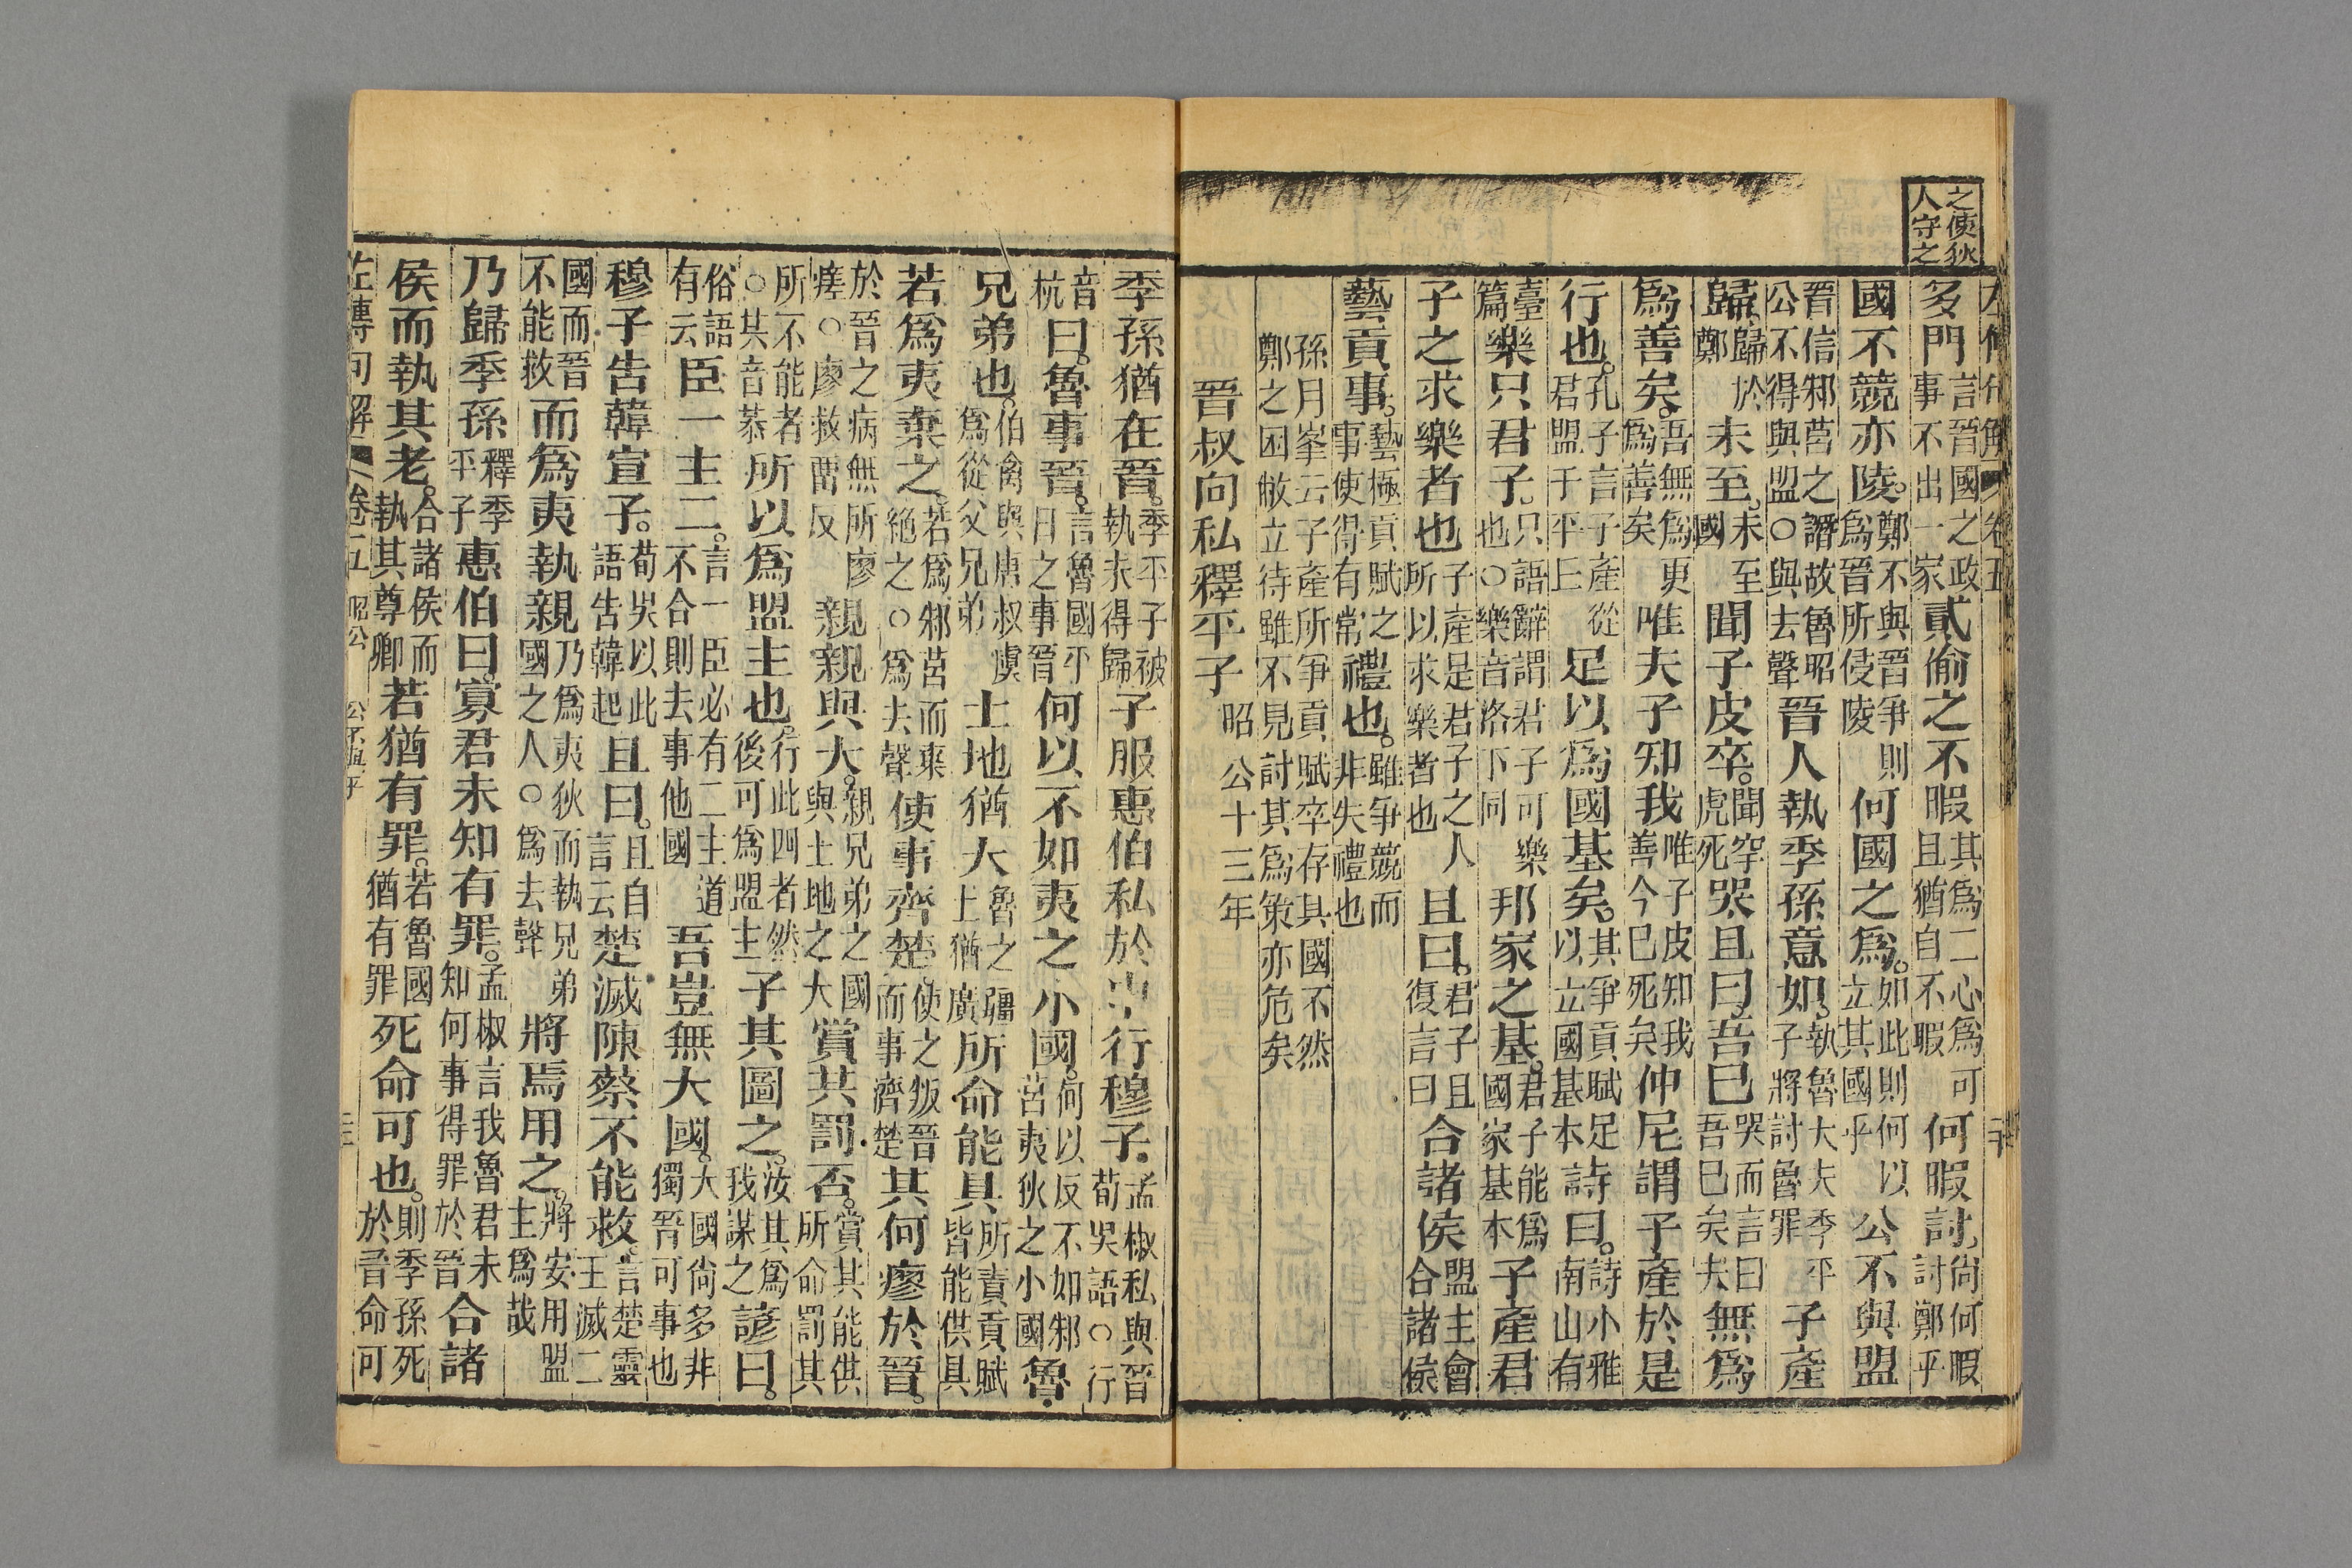 之使狄
人守之
左傳句解 卷五
多門言晉國之政事不出一家貳偷之不暇其爲二心爲可且猶自不暇何暇討尚何暇討鄭乎
國不競亦陵。鄭不與晉爭則爲晉所侵陵何國之爲。如此則何以立其國乎公不與盟
晉信邾莒之譖故魯昭公不得與盟○與去聲晉人執季孫意如。執魯大夫季平子將討魯罪子產
歸。歸於鄭未至。未至國聞子皮卒。聞罕虎死哭且曰。吾已哭而言曰吾已矣夫無爲
爲善矣。吾無爲更爲善矣唯夫子知我唯子皮知我善今已死矣仲尼謂子產於是
行也。孔子言子產從君盟于平丘足以爲國基矣。其爭貢賦足以立國基本詩曰。詩小雅南山有
臺篇樂只君子。只語辭謂君子可樂也○樂音洛下同邦家之基。君子能爲國家基本子產君
子之求樂者也子產足君子之人所以求樂者也且曰。君子且復言曰合諸侯盟主會合諸侯
藝貢事。藝極貢賦之事使得有常禮也。雖爭競而非失禮也
孫月峯云子產所爭貢賦卒存其國不然
鄭之困敝立待雖不見討其爲策亦危矣
晉叔向私釋平子 昭公十三年
季孫猶在晉。季平子被執未得歸子服惠伯私於中行穆子。孟椒私與晉荀吳語○行
音杭曰。魯事晉。言魯國平日之事晉何以不如夷之小國。何以反不如邾莒夷狄之小國魯。
兄弟也。伯禽與唐叔虞爲從父兄弟土地猶大魯之疆土猶廣所命能具所責貢賦皆能供具
若爲夷棄之。若爲邾莒而棄絶之○爲去聲使事齊楚。使之叛晉而事齊楚其何瘳於晉。
於晉之病無所瘳瘥○瘳救畱反親親與大。親兄弟之國與土地之大賞共罰否。賞其能供所命罰其
所不能者○其音恭所以爲盟主也。行此四者然後可爲盟主子其圖之。汝其爲我謀之諺曰。
俗語有云臣一主二。言一臣必有二主道不合則去事他國吾豈無大國。大國尙多非獨晉可事也
穆子告韓宣子。荀吳以此語告韓起且曰。且自言云楚滅陳蔡不能救。言楚靈王滅二
國而晉不能救而爲夷執親乃爲夷狄而執兄弟國之人○爲去聲將焉用之。將安用盟主爲哉
乃歸季孫釋季平子惠伯曰。寡君未知有罪。孟椒言我魯君未知何事得罪於晉合諸
侯而執其老。合諸侯而執其尊卿若猶有罪。若魯國猶有罪死命可也。則季孫死於晉命可
左傳句解 卷五 昭公